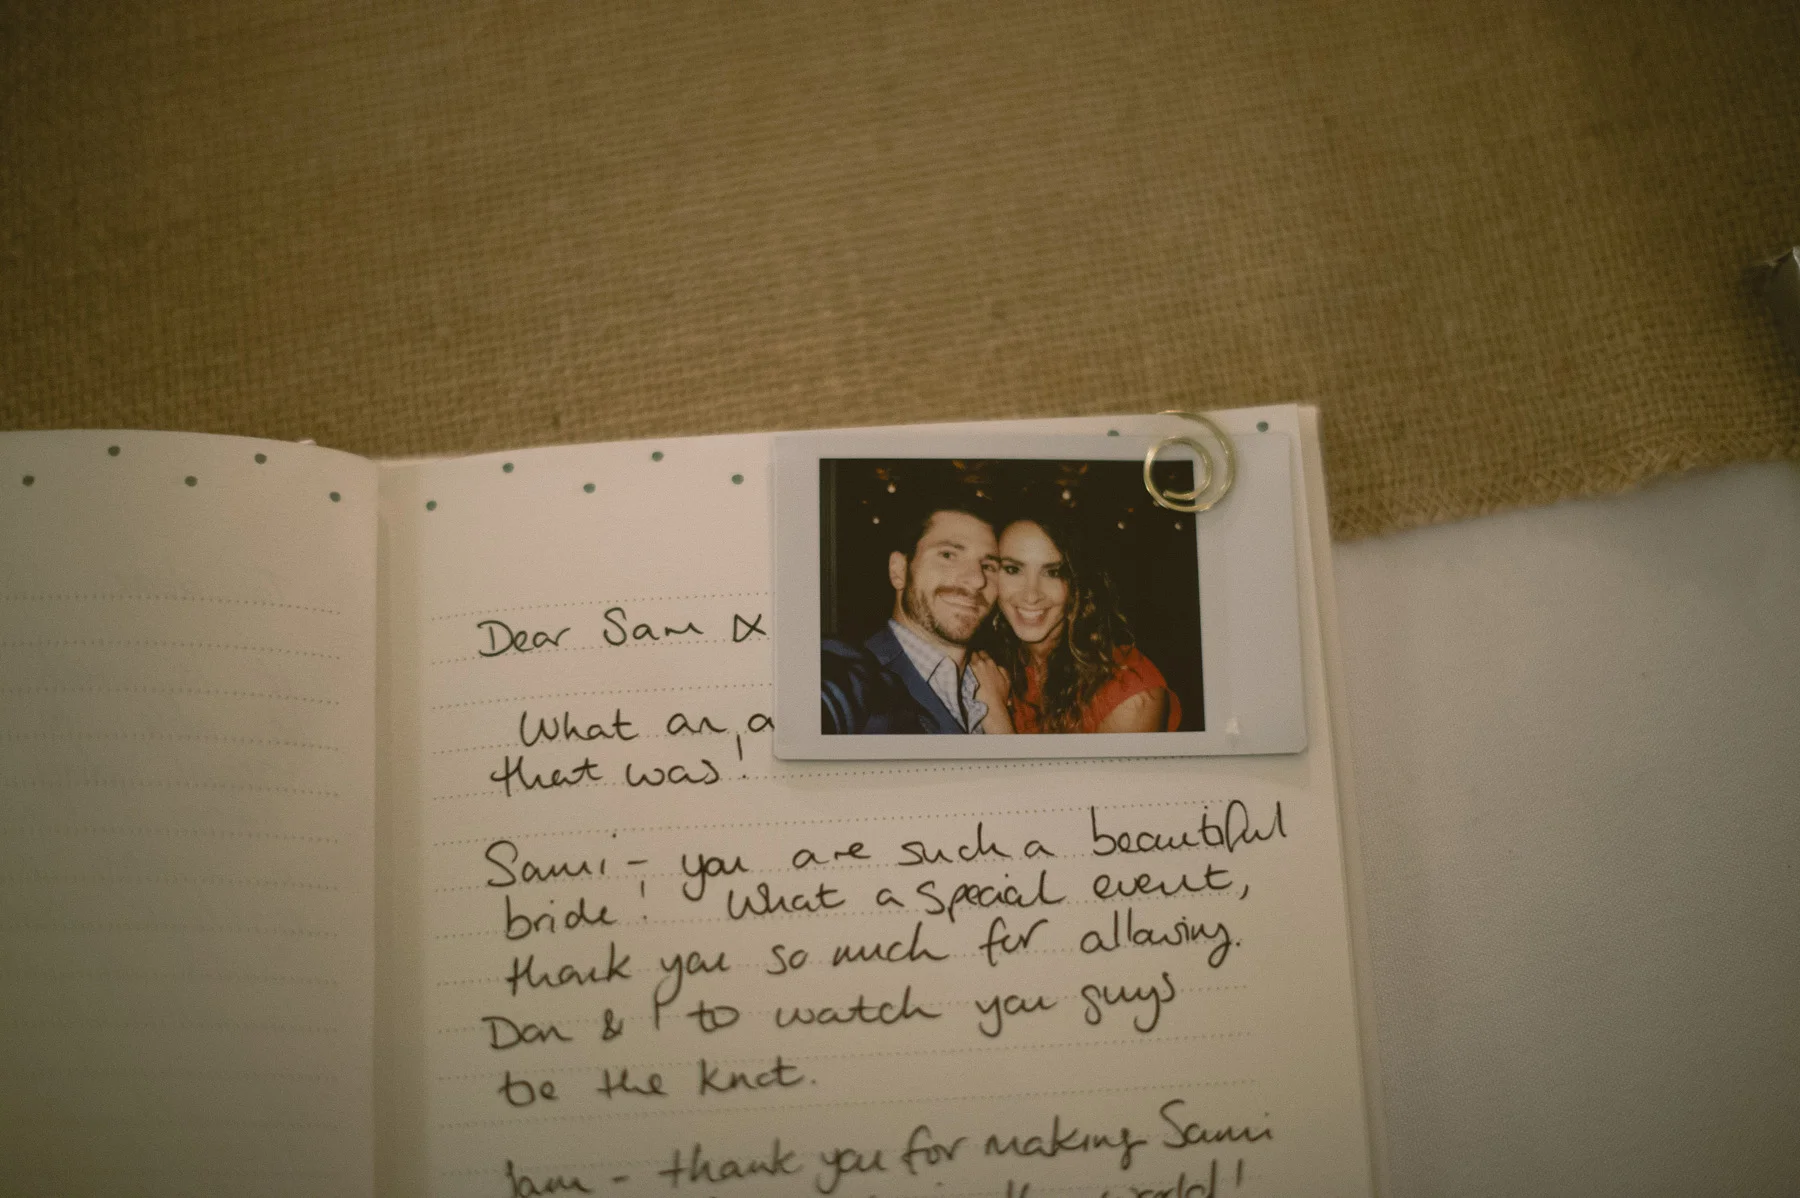 Dear Sam &
What an a
that was!
Sami - you are such a beautiful
bride! What a special event,
thank you so much for allowing.
Dan & I to watch you guys
be the knot.
Sam - thank you for making Sami
world!